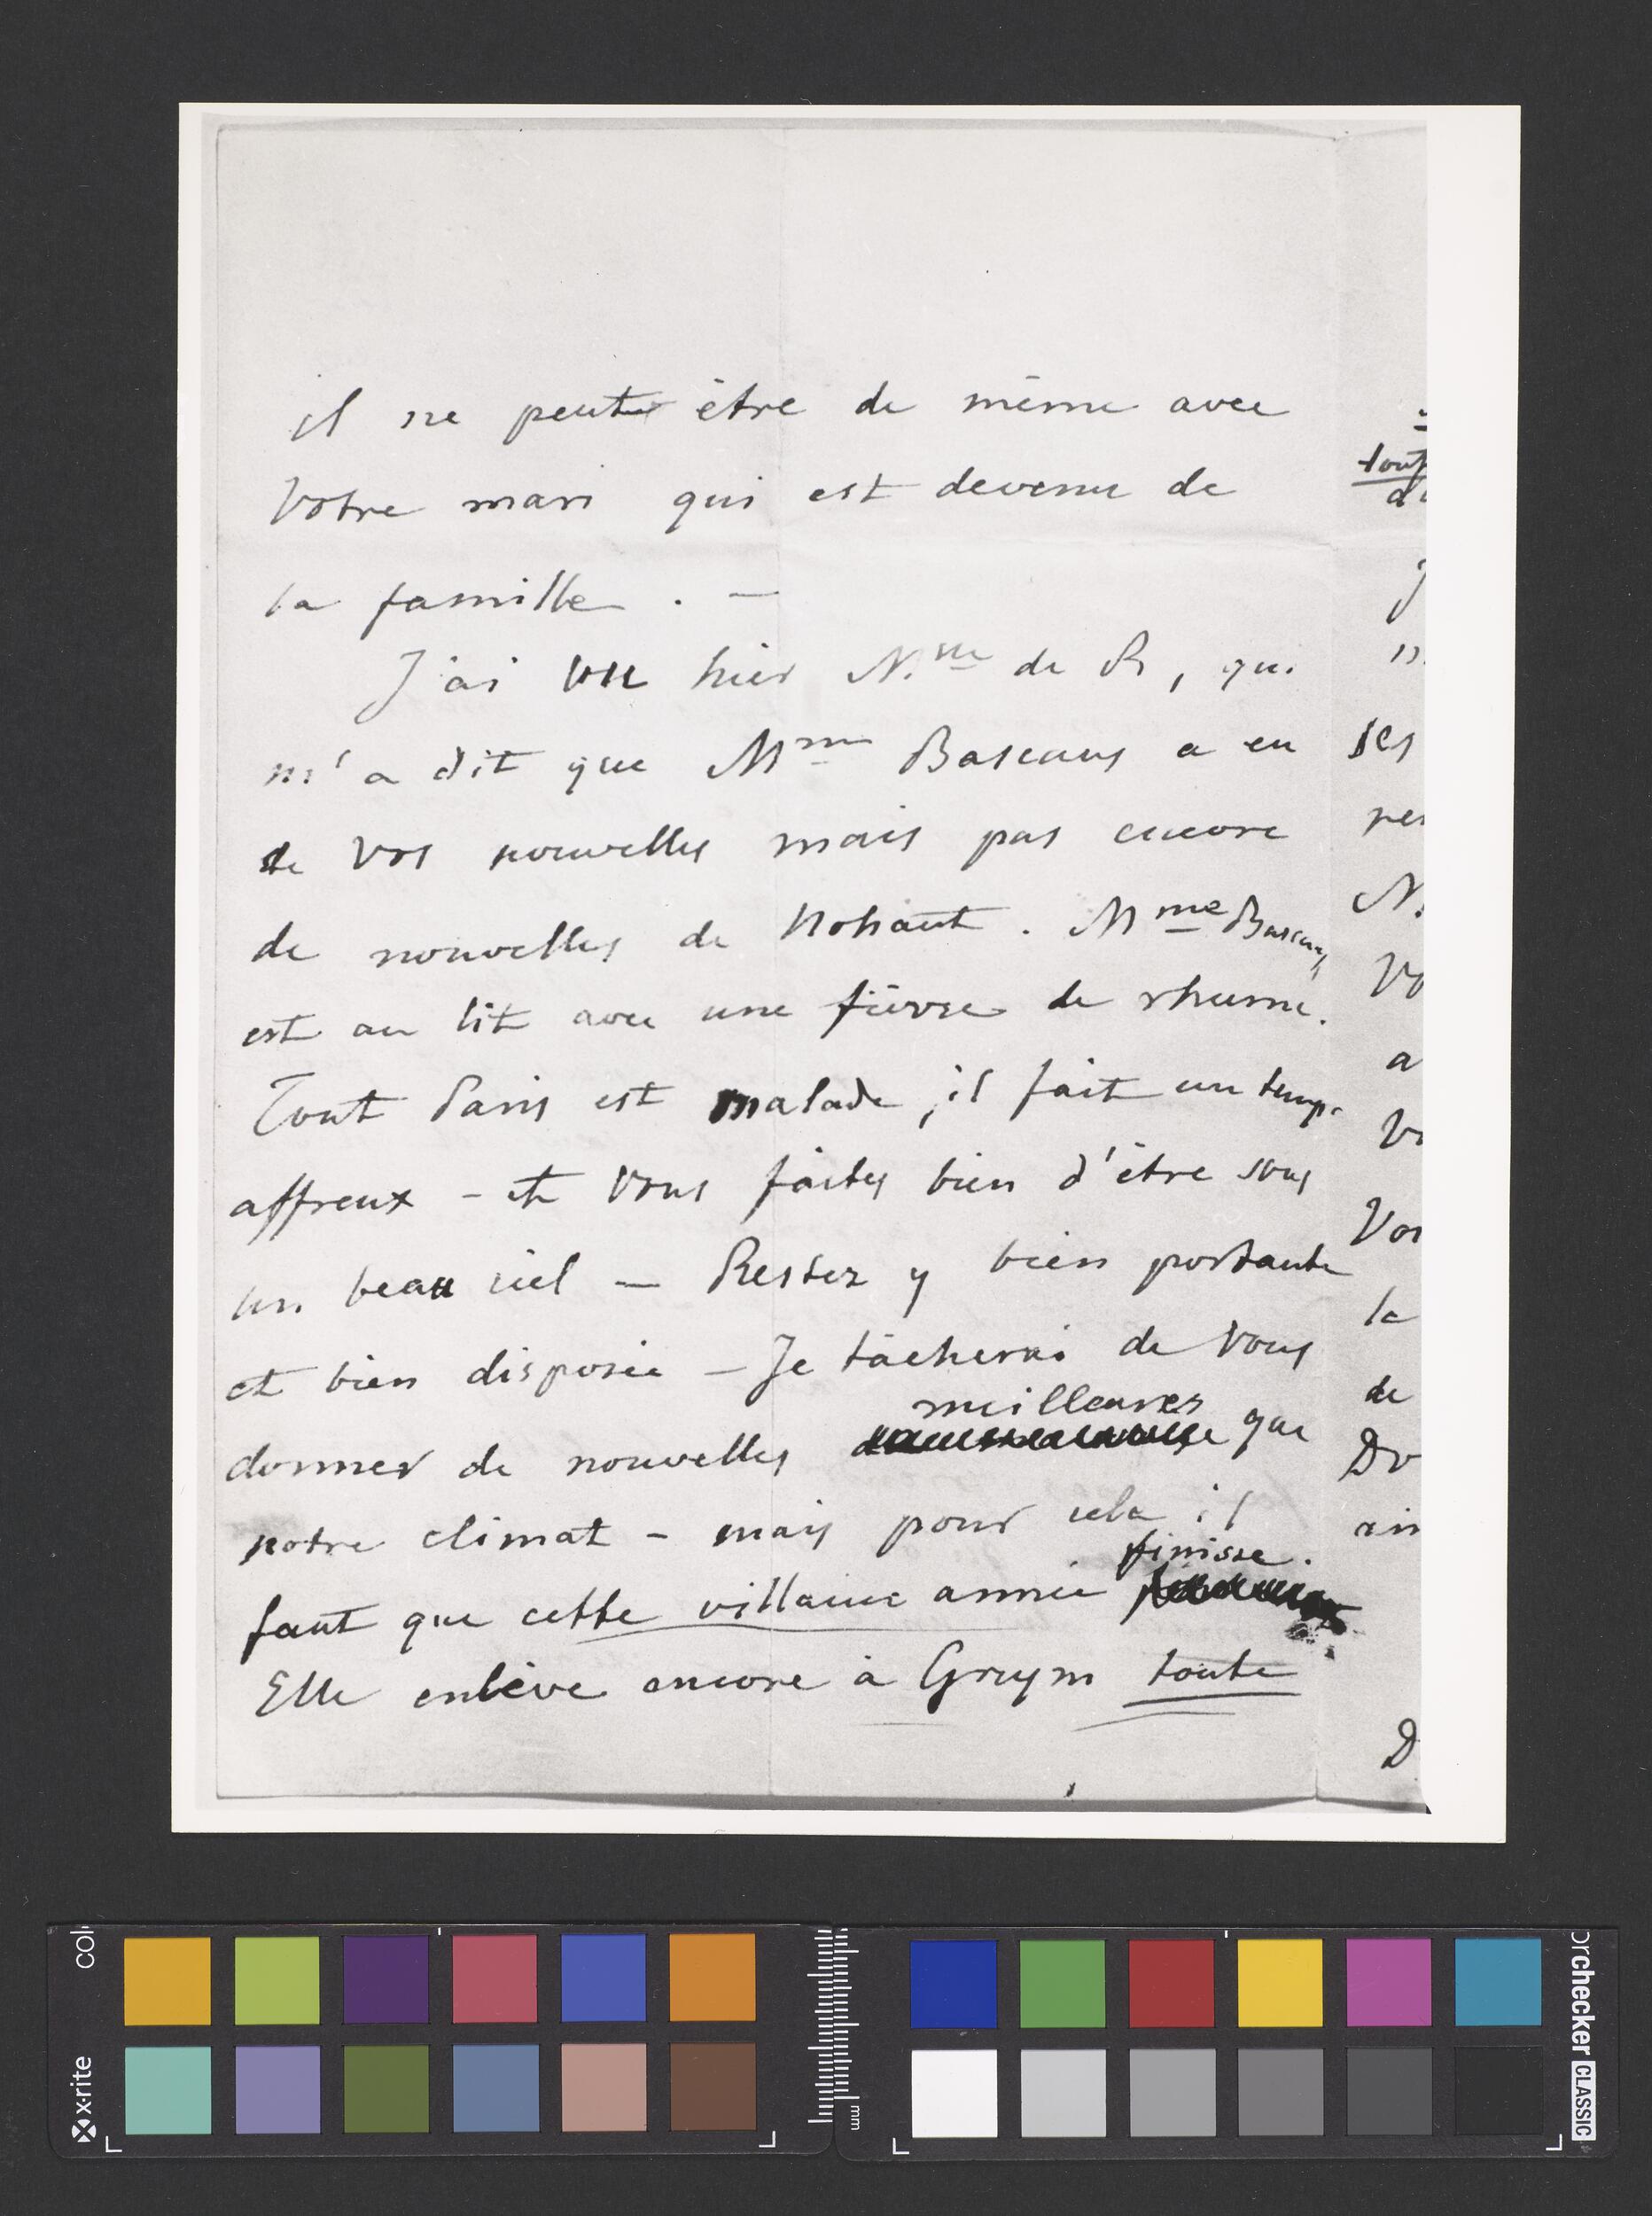 il ne peut être de même avec
votre mari qui est devenu de
la famille . –
J'ai vu hier M.me de R, qui
m'a dit que Mme Bascans a eu
de vos nouvelles mais pas encore
de nouvelles de Nohant . Mme Bascans
est au lit avec une fièvre de rhume.
Tout Paris est malade, il fait un temps
affreux – et vous faites bien d'être sous
un beau ciel – Restez y bien portante
et bien disposée – Je tâcherai de vous
meilleures
donner de nouvelles que
notre climat – mais pour cela il
finisse.
faut que cette villaine année
Elle enlève encore à Grzym toute
tout
ses
de
la
x-rite
mm
orchecker CLASSIC